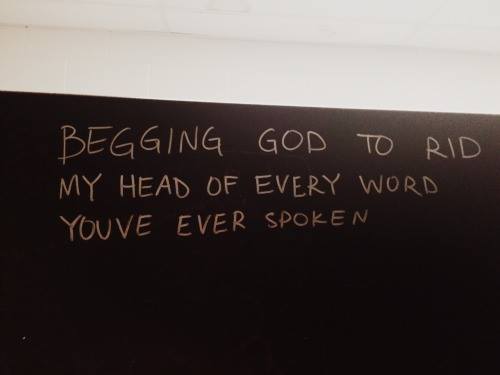 BEGGING GOD TO RID
MY HEAD OF EVERY WORD
YOUVE EVER SPOKEN